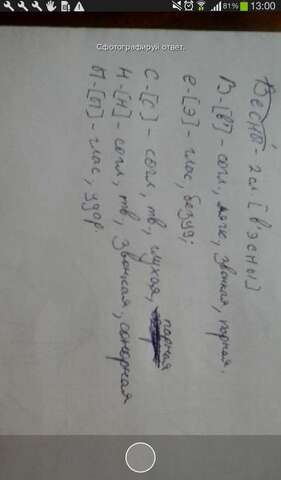 81% 13:00
Сфотографируй ответ.
Весны - 2 сл [в'эсны]
В - [в'] - согл, мягк, звонкая, парная.
е - [э] - глас, безуд;
с - [с] - согл, тв, глухая, парная
н - [н] - согл, тв, звонкая, сонорная
ы - [ы] - глас, удар